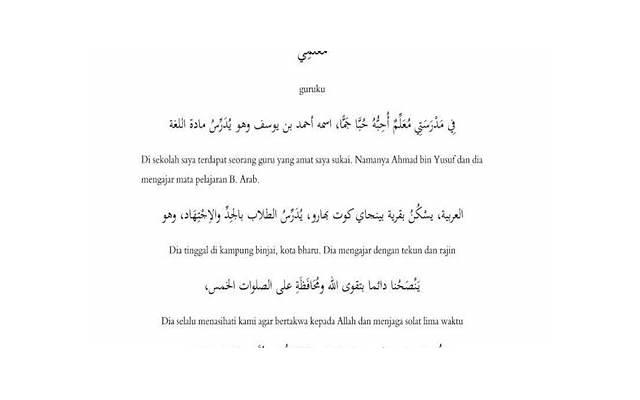 معلمي
guruku
فِي مَدْرَسَتِي مُعَلِّمٌ أُحِبُّهُ حُبًّا جَمًّا، اسمه أحمد بن يوسف وهو يُدَرِّسُ مادة اللغة
Di sekolah saya terdapat seorang guru yang amat saya sukai. Namanya Ahmad bin Yusuf dan dia
mengajar mata pelajaran B. Arab.
العربية، يسْكُنُ بقرية بينجاي كوت بهارو، يُدَرِّسُ الطلاب بالجِدِّ والإجْتِهَاد، وهو
Dia tinggal di kampung binjai, kota bharu. Dia mengajar dengan tekun dan rajin
يَنْصَحُنا دائما بتقوى الله ومُحَافَظَةِ على الصلوات الخمس،
Dia selalu menasihati kami agar bertakwa kepada Allah dan menjaga solat lima waktu